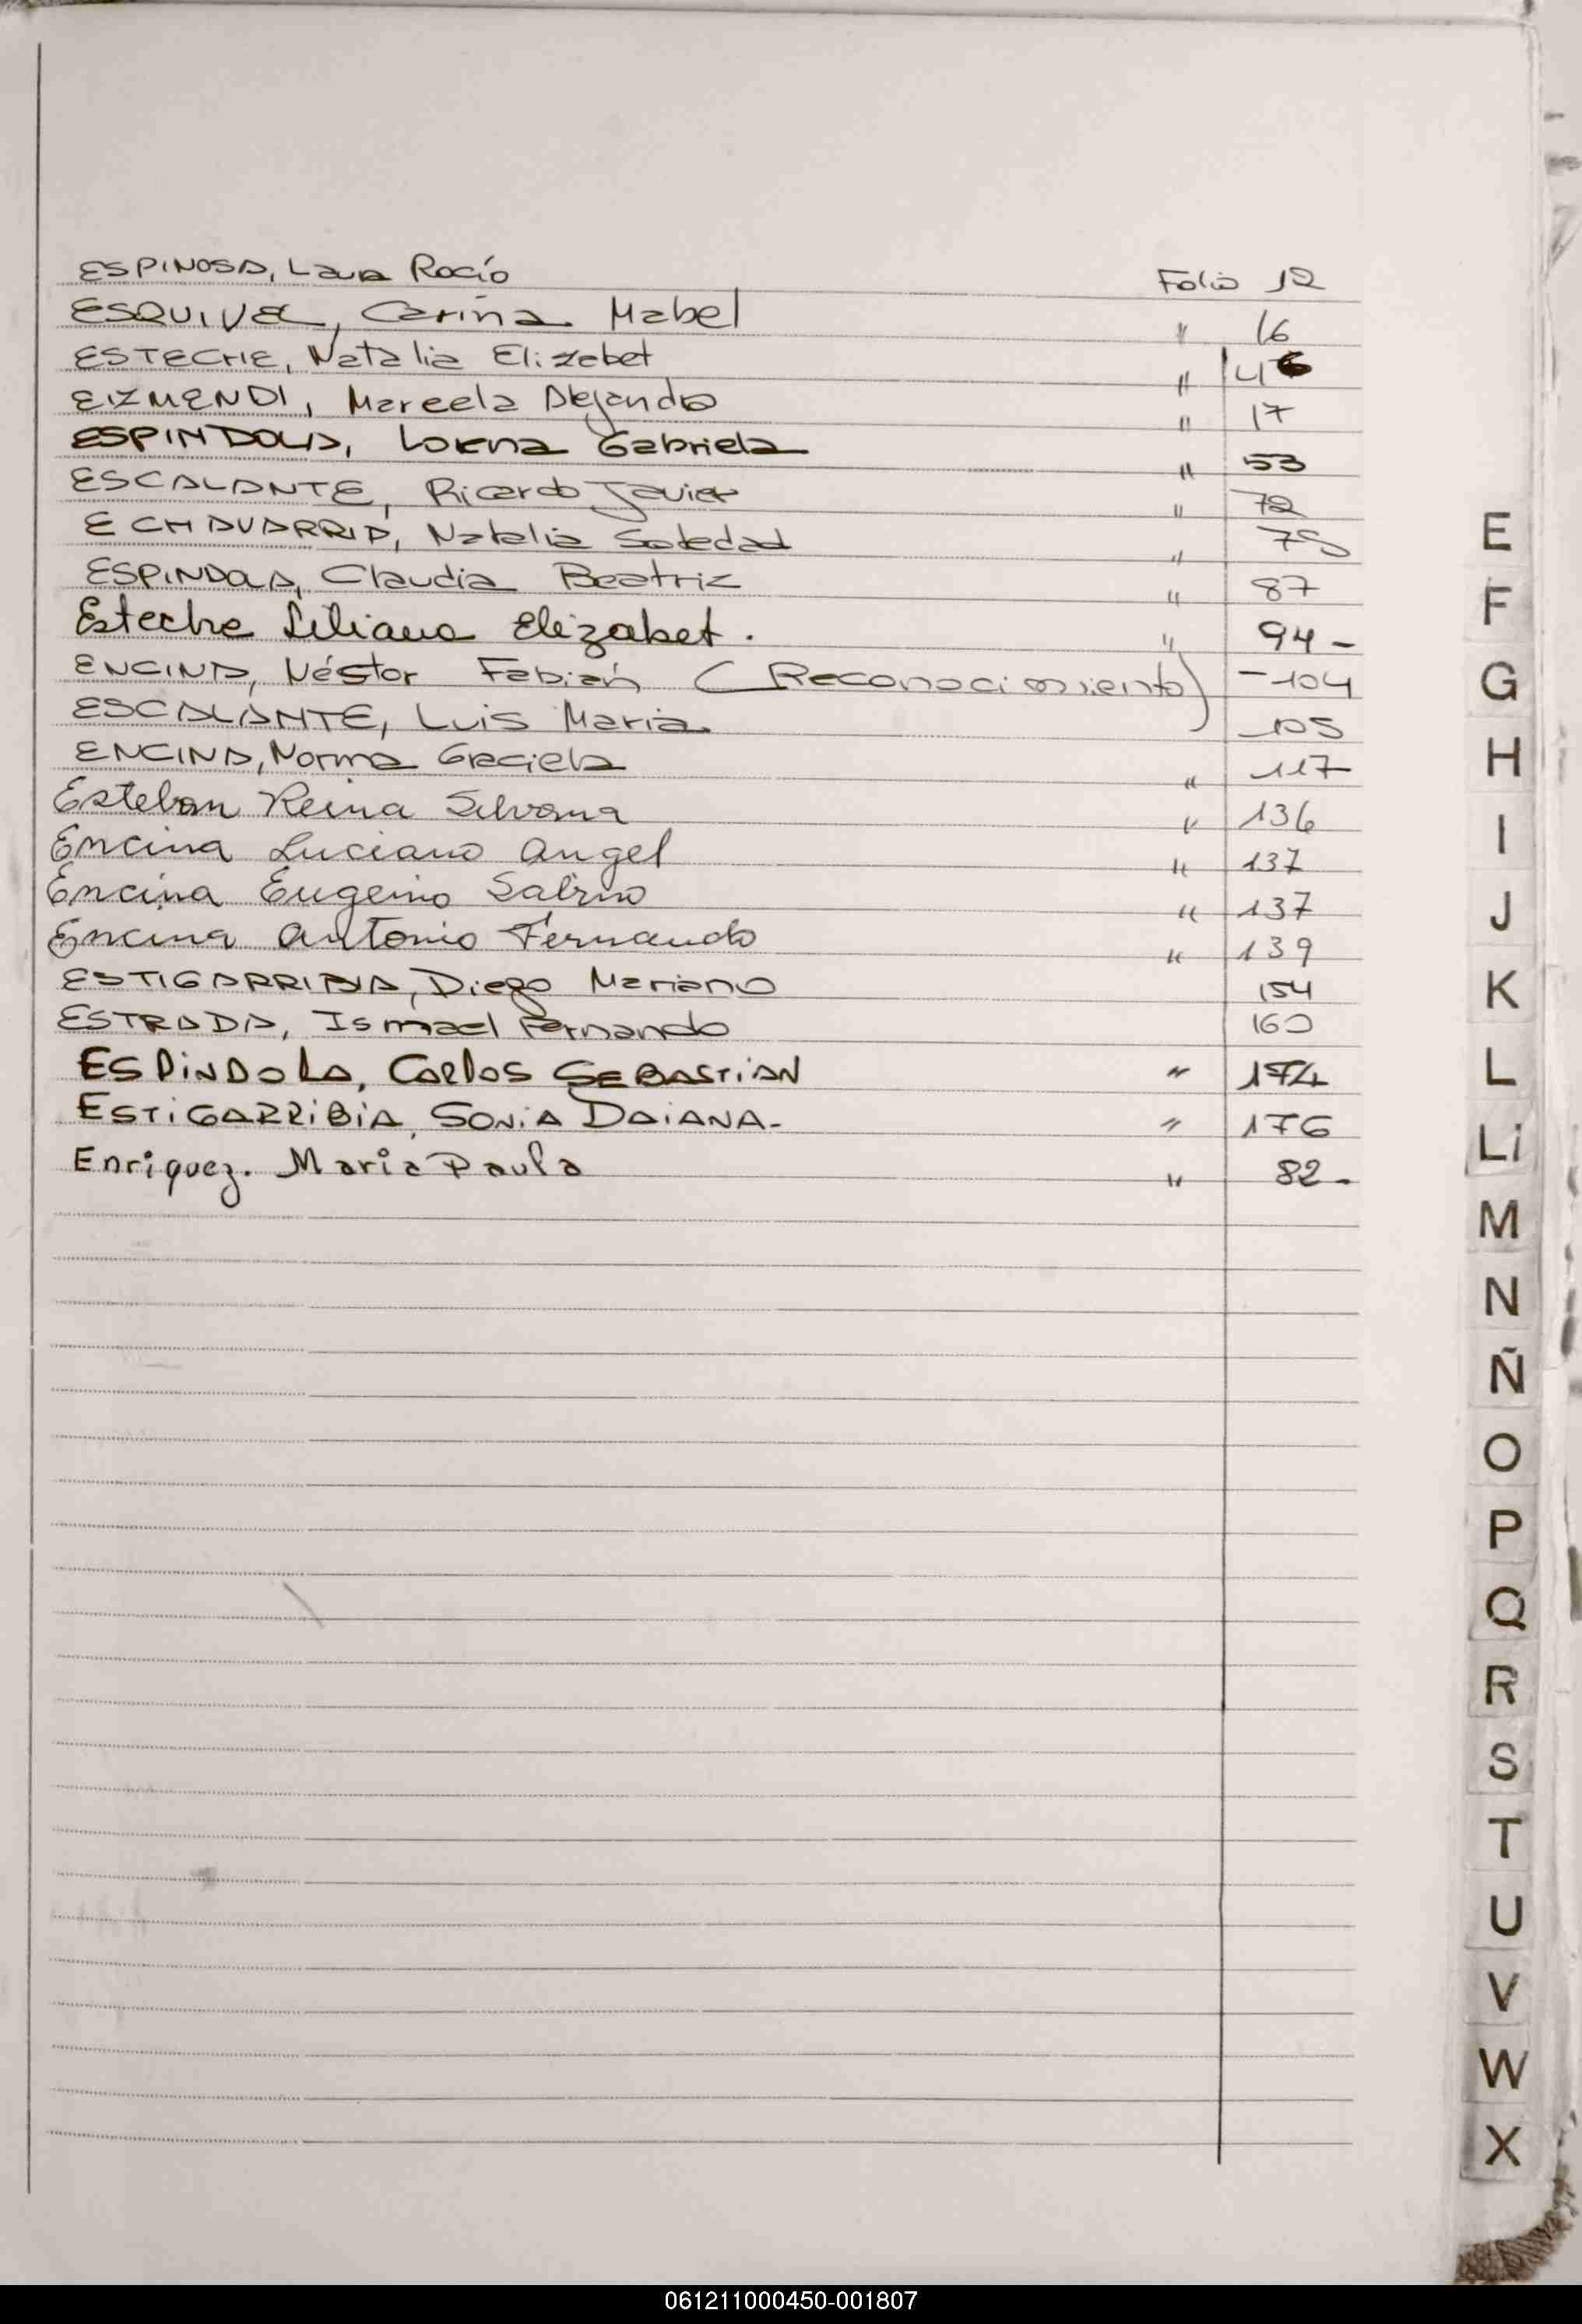 ESPINOSA, Laura Rocío Folio 12
ESQUIVEL, Carina Mabel " 16
ESTECHE, Natalia Elizabet " 46
EIZMENDI, Marcela Alejandra " 17
ESPINDOLA, Lorena Gabriela " 53
ESCALANTE, Ricardo Javier " 72
ECHAVARRIA, Natalia Soledad " 75
ESPINDOLA, Claudia Beatriz " 87
Esteche Liliana Elizabet. " 94-
ENCINA, Néstor Fabián (Reconocimiento) -104
ESCALANTE, Luis Maria 105
ENCINA, Norma Graciela " 117
Esteban Reina Silvana " 136
Encina Luciano Angel " 137
Encina Eugenio Sabino " 137
Encina Antonio Fernando " 139
ESTIGARRIBIA, Diego Mariano 154
ESTRADA, Ismael Fernando 160
ESPINDOLA, CARLOS SEBASTIAN " 174
ESTIGARRIBIA, SONIA DAIANA- " 176
Enriquez. Maria Paula " 82-
E
F
G
H
I
J
K
L
Ll
M
N
Ñ
O
P
Q
R
S
T
U
V
W
X
061211000450-001807